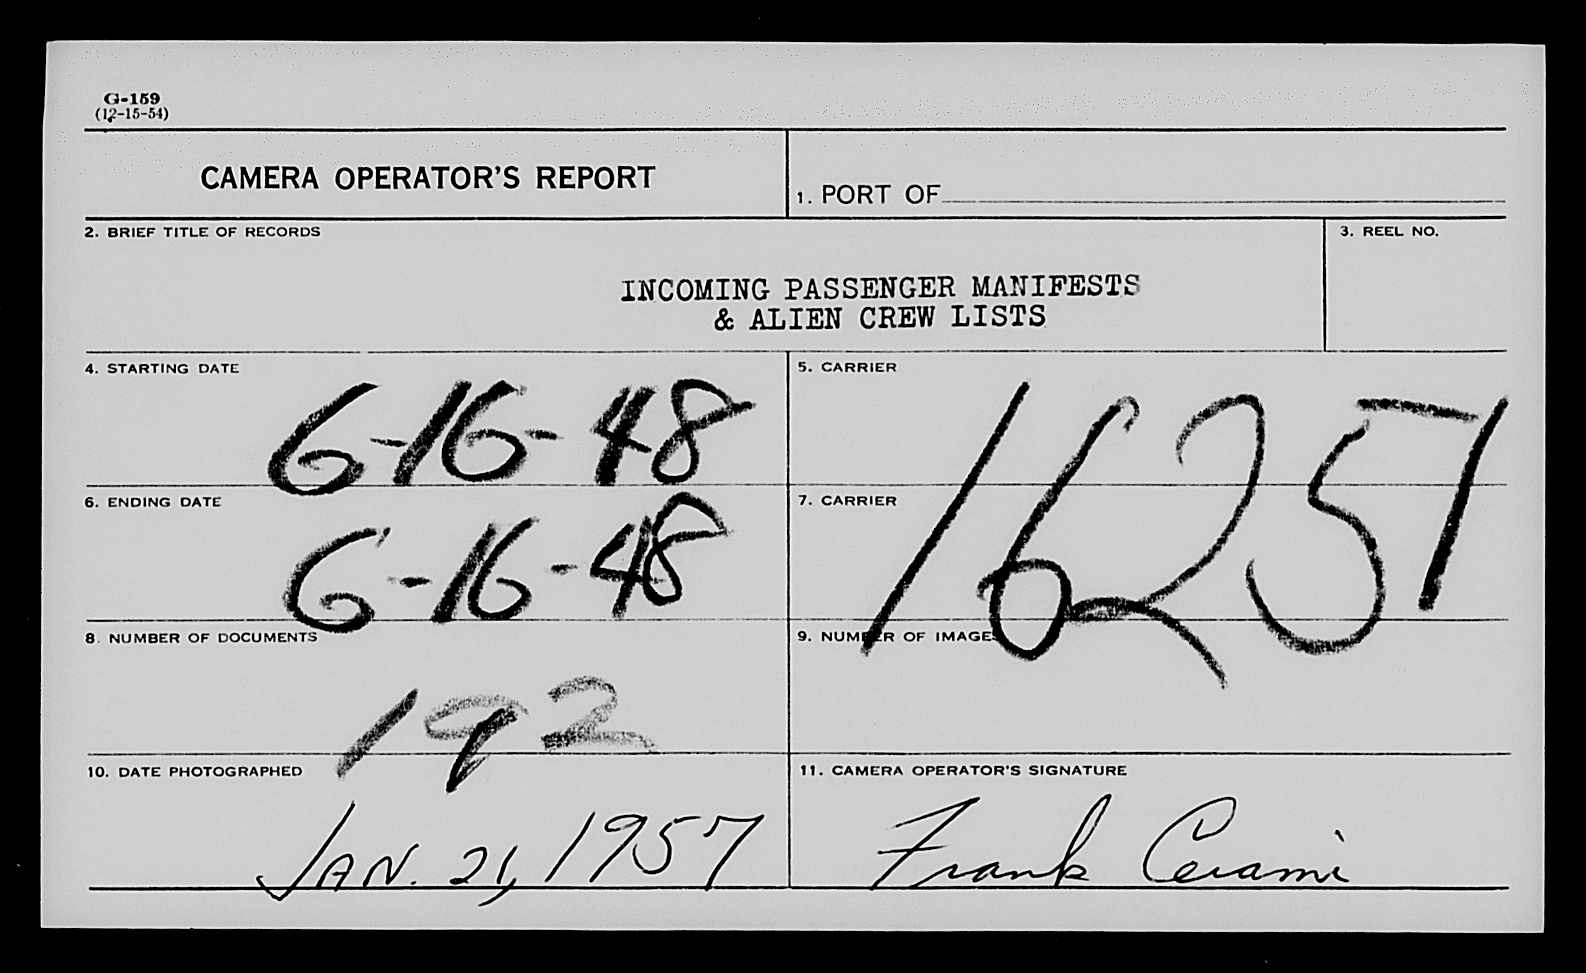 G-159
(12-15-54)
CAMERA OPERATOR'S REPORT
1. PORT OF
2. BRIEF TITLE OF RECORDS
3. REEL NO.
INCOMING PASSENGER MANIFESTS
& ALIEN CREW LISTS
4. STARTING DATE
6-16-48
5. CARRIER
16251
6. ENDING DATE
6-16-48
7. CARRIER
8. NUMBER OF DOCUMENTS
192
9. NUMBER OF IMAGES
10. DATE PHOTOGRAPHED
JAN. 21, 1957
11. CAMERA OPERATOR'S SIGNATURE
Frank Cerami